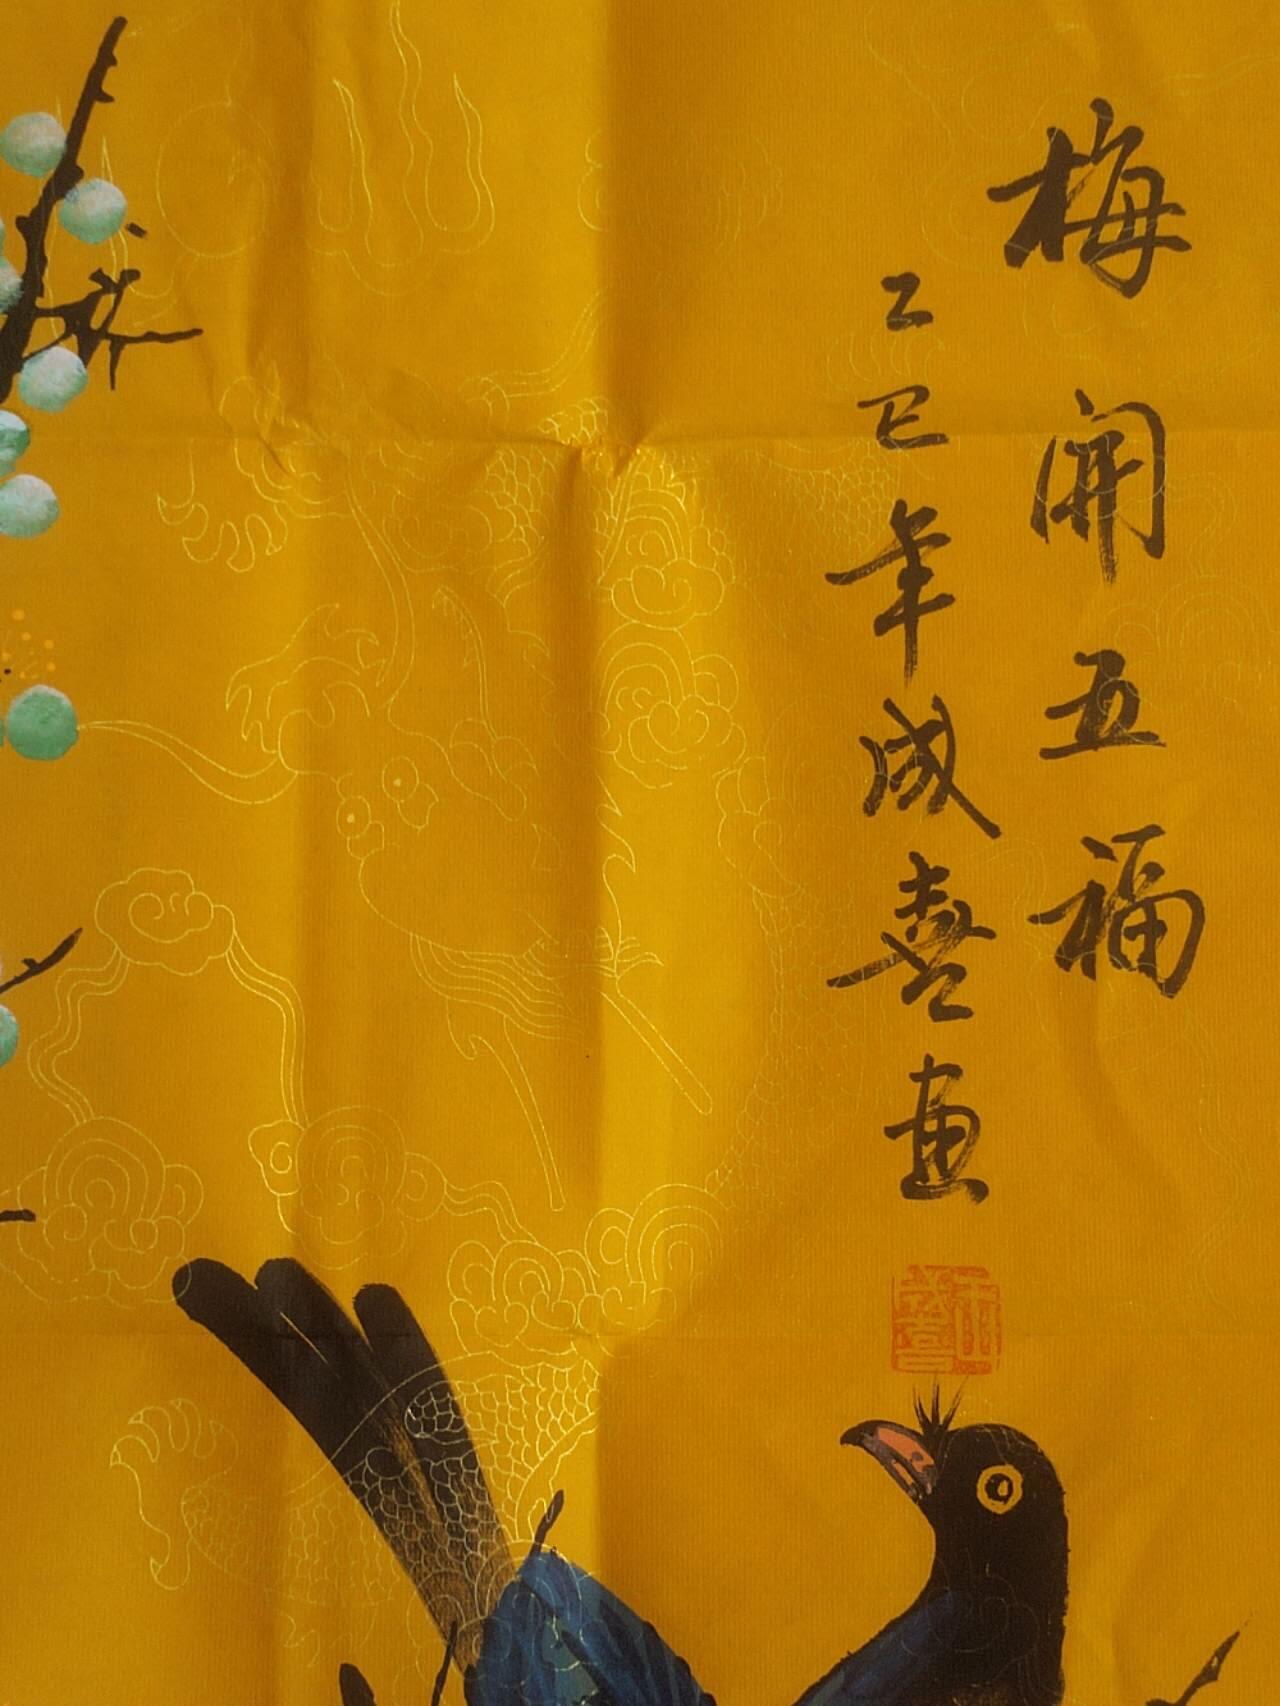 梅開五福
乙巳年成喜画